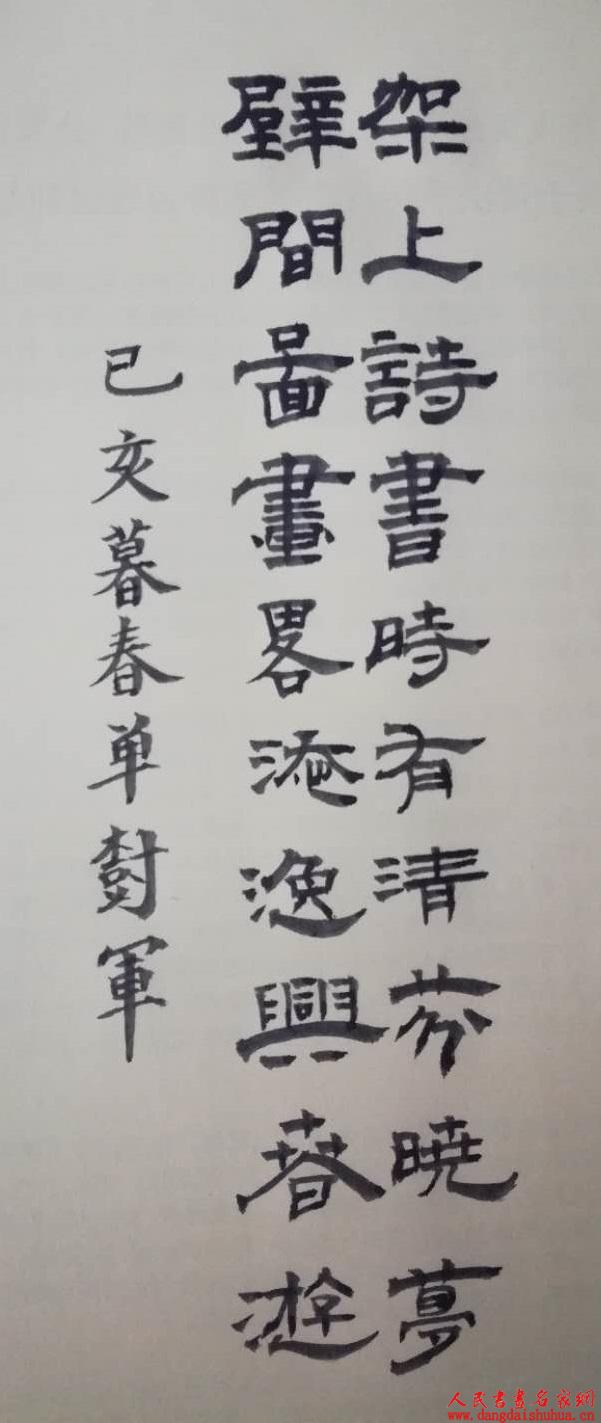 架上詩書時有清芬曉夢
壁間啚畫畧添逸興春遊
己亥暮春单樹軍
人民書畫名家網
www.dangdaishuhua.cn